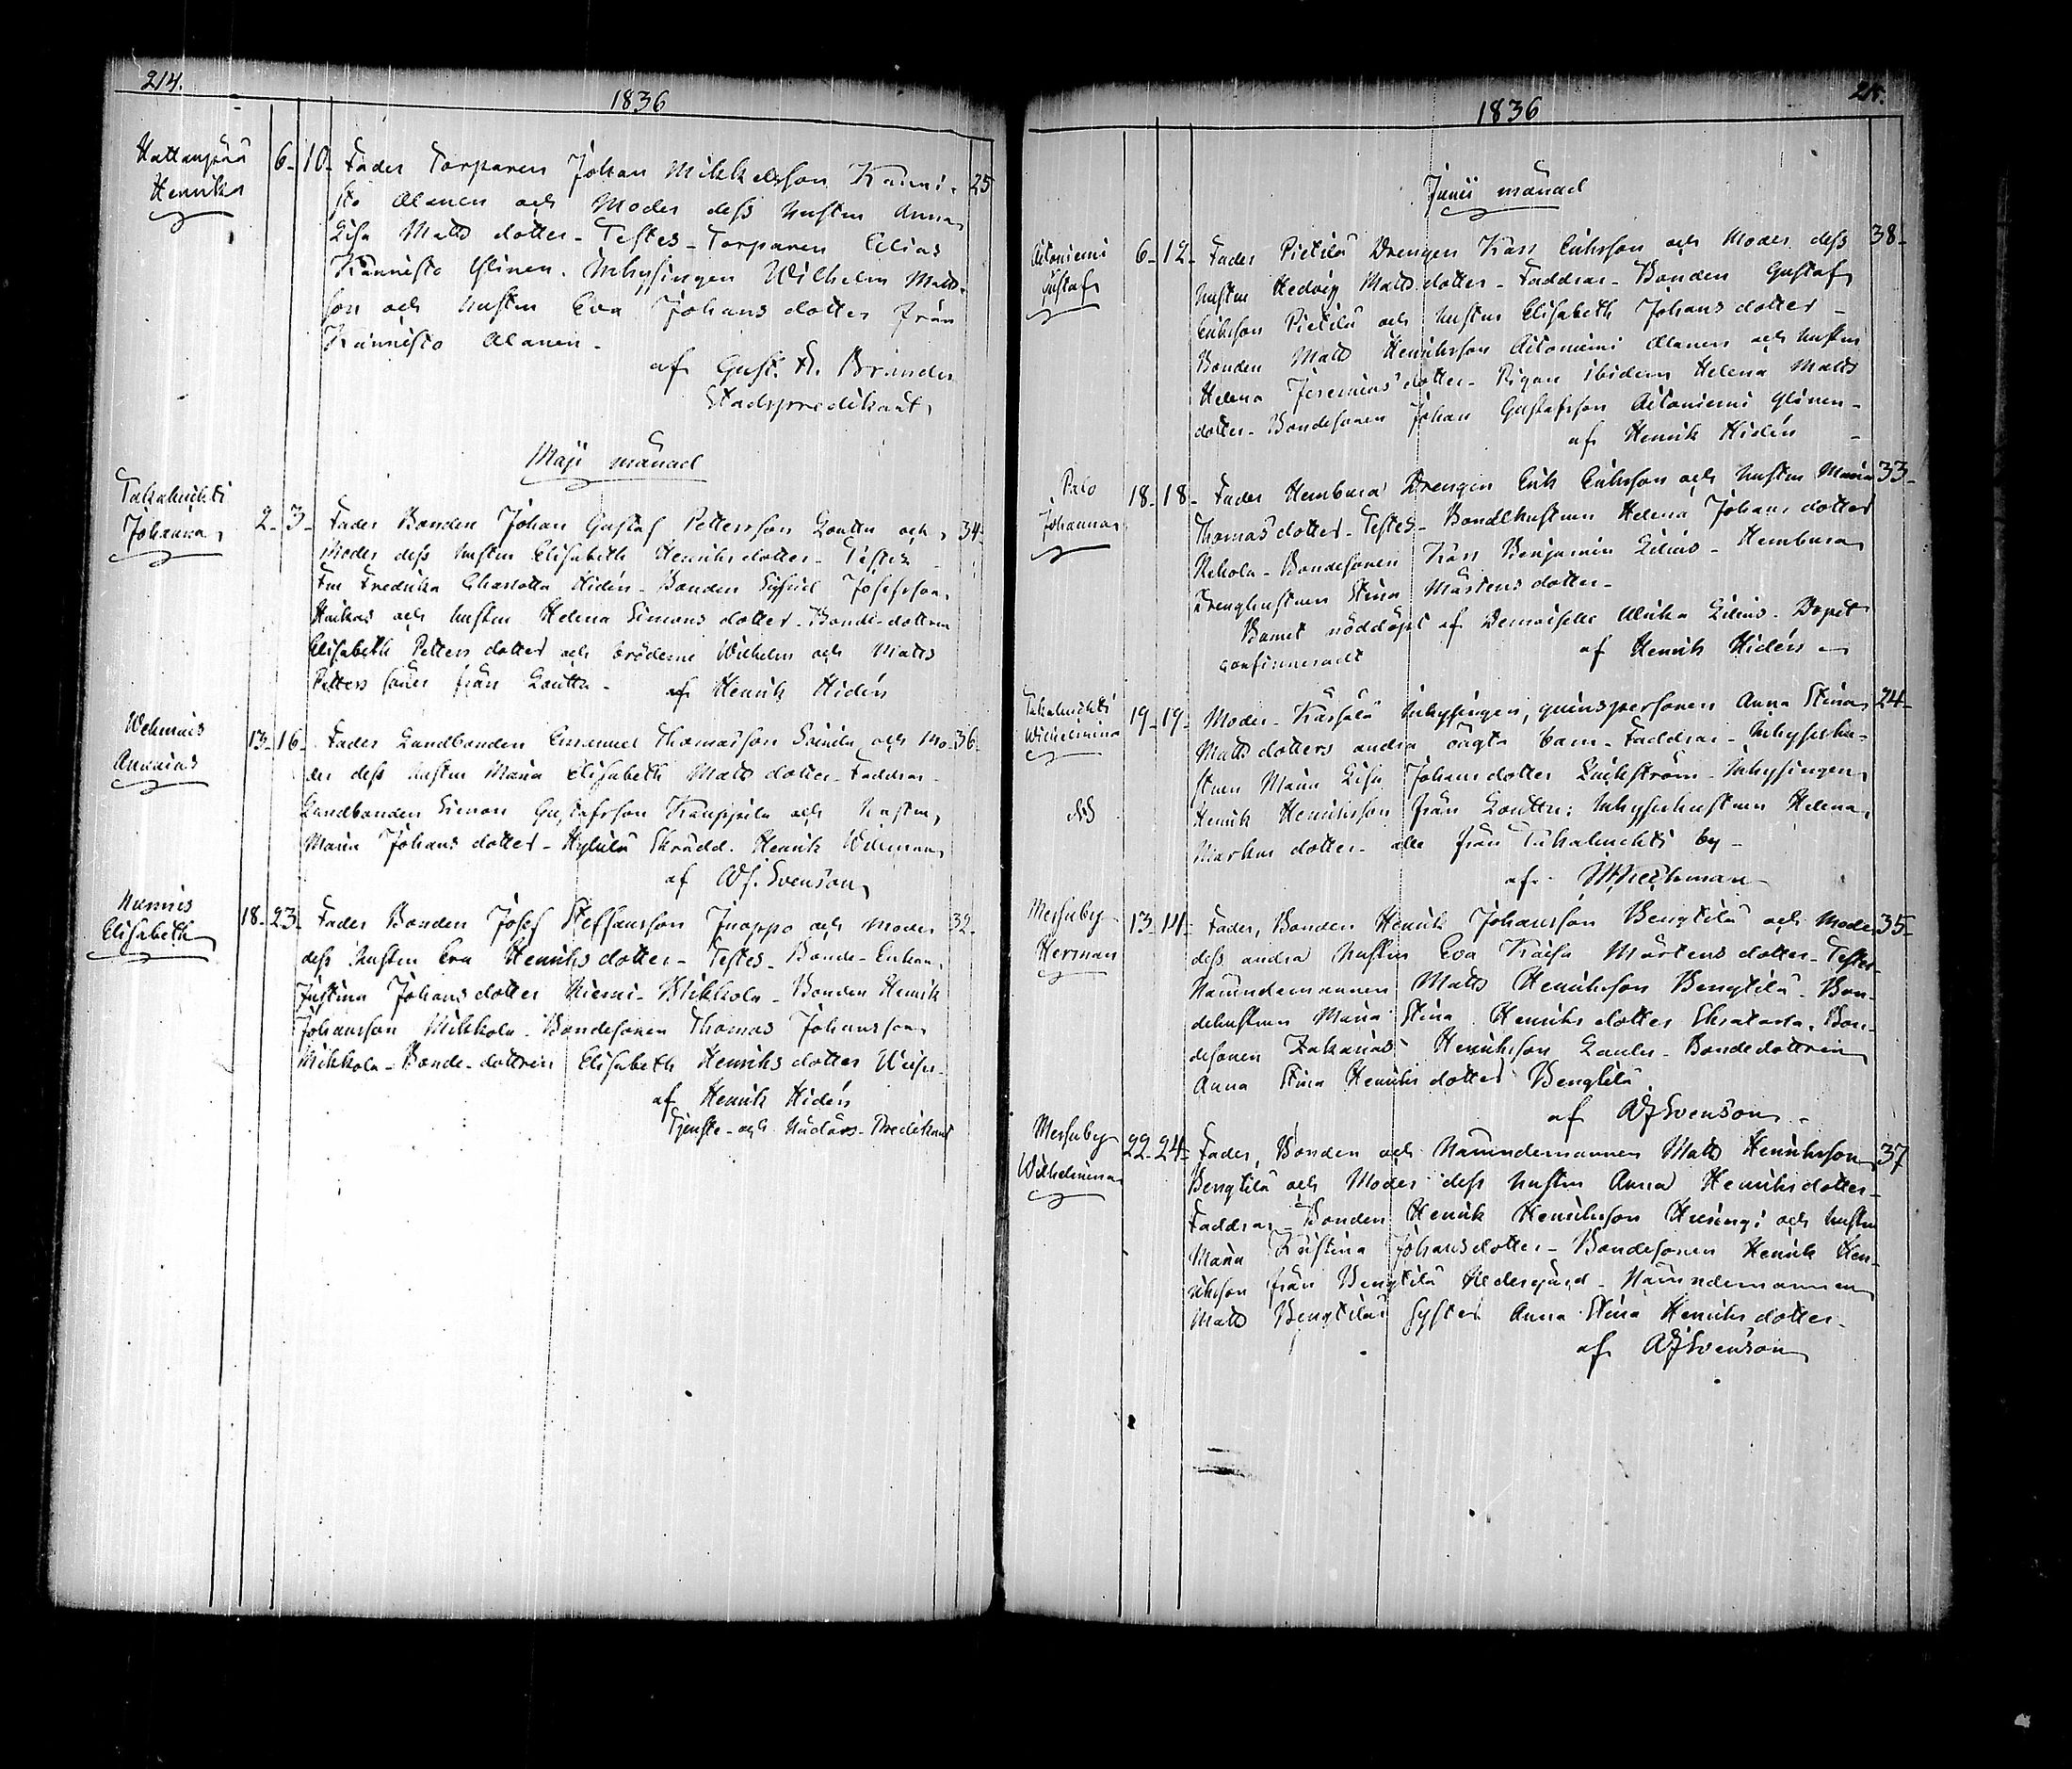 214.
1836
Hattanpää
Henrik
6. 10. Fader Torparen Johan Mikkelsson Känni- 25
stö Alanen och Moder dess hustru Anna
Lisa Matts dotter. Testes. Torparen Elias
Kännistö Ylinen. Inhysingen Wilhelm Matts-
son och hustru Eva Johans dotter från
Kännistö Alanen.
af Gust. A. Brander
Stadspredikant
Maji månad
Takahuhti
Johanna
2. 3. Fader Bonden Johan Gustaf Pettersson Louttu och 34.
Moder dess hustru Elisabeth Henriksdotter. Testes
Fru Fredrika Charlotta Hidén. Bonden Sigfrid Josefsson
och hustru Helena Simons dotter. Bonde-dottren
Elisabeth Petters dotter och bröderne Wilhelm och Matts
Petters söner från Louttu. af Henrik Hidén
Wehmais
Ananias
13. 16. Fader Landbonden Emanuel Thomasson och Mo- 36.
der dess hustru Maria Elisabeth Matts dotter. Faddrar.
Landbonden Simon Gustafsson Kauppila och hustru
Maria Johans dotter. Hylulä Skrädd. Henrik Willman
af A. J. Svenson
Elisabeth
18. 23. Fader Bonden Josef Steffansson Juoppo och moder 32.
dess hustru Eva Henriks dotter. Testes. Bonde-Enkan
Justina Johans dotter Niemi-Mikkola. Bonden Henrik
Johansson Mikkola. Bondesonen Thomas Johansson
Mikkola. Bonde-dottren Elisabeth Henriks dotter
af Henrik Hidén
Tjenste- och Nådårs-Predikant
215.
1836
Junii månad
Aitoniemi
Gustaf
6. 12. Fader Pietilä Drengen Karl Eriksson och Moder dess 38.
hustru Hedvig Matts dotter. Faddrar. Bonden Gustaf
Eriksson Pietilä och hustru Elisabeth Johans dotter.
Bonden Matts Henriksson Aitoniemi Alanen och hustru
Helena Jeremias dotter. Pigan ibidem Helena Matts
dotter. Bondesonen Johan Gustafsson Aitoniemi Ylinen.
af Henrik Hidén
Palo
Johanna
18. 18. Fader Hembura Drengen Erik Eriksson och hustru Maria 33.
Thomas dotter. Testes. Bondehustrun Helena Johans dotter
Rekola. Bondesonen Karl Benjamin Lilius. Hembura
Drenghustrun Stina Mårtens dotter.
Barnet nöddöpt af Demoiselle Ulrika Lilius. Dopet
confirmeradt
af Henrik Hidén
Takahuhti
Wilhelmina
19. 19. Moder. Inhysingen, qvinspersonen Anna Stina 24.
Matts dotters andra oägta barn. Faddrar. Inhyseshu-
strun Maria Lisa Johans dotter Lindström. Inhysingen
Henrik Henriksson från Louttu. Inhyseshustrun Helena
Markus dotter. alla från Takahuhti by.
af
Messuby
Herman
13. 14. Fader, Bonden Henrik Johansson Bengtilä och Moder 35.
dess andra hustru Eva Kaisa Mårtens dotter. Testes
Nämndemannen Matts Henriksson Bengtilä. Bon-
dehustrun Maria Stina Henriks dotter. Bon-
desonen Zakarias Henriksson Laulu. Bondedottren
Anna Stina Henriks dotter Bengtilä
af A J Svenson
Messuby
Wilhelmina
22. 24. Fader, Bonden och Nämndemannen Matts Henriksson 37
Bengtilä och Moder dess hustru Anna Henriksdotter.
Faddrar. Bonden Henrik Henriksson och hustru
Maria Kristina Johansdotter. Bondesonen Henrik Hen-
riksson från Bengtilä Nedergård. Nämndemannen
Matts Bengtiläs syster Anna Stina Henriks dotter.
af A J Svenson